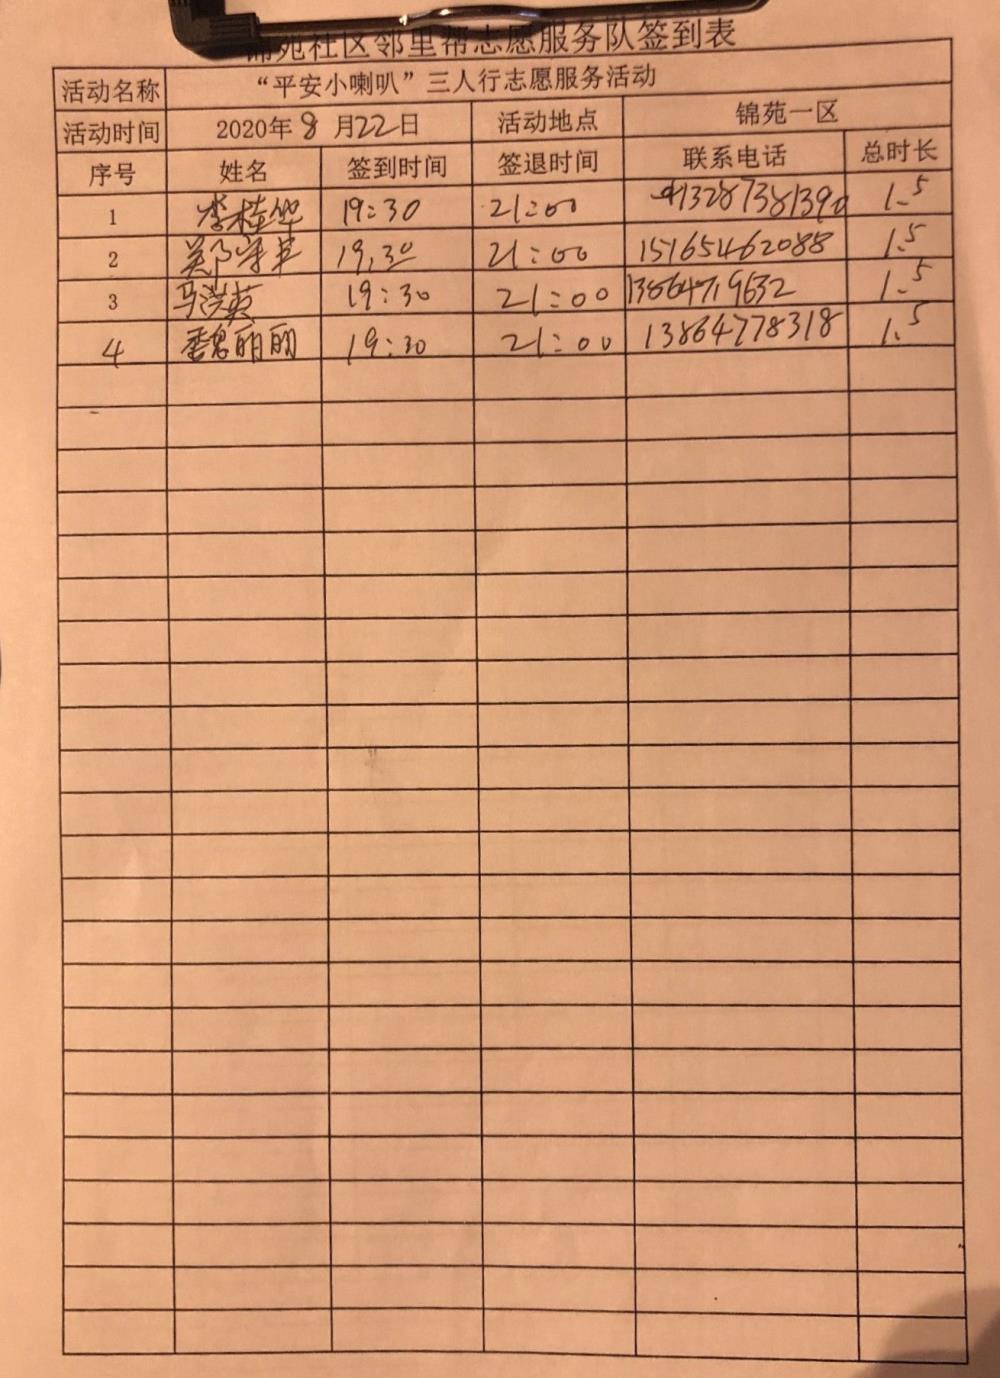 锦苑社区邻里帮志愿服务队签到表
活动名称 “平安小喇叭”三人行志愿服务活动
活动时间 2020年8月22日 活动地点 锦苑一区
序号 姓名 签到时间 签退时间 联系电话 总时长
1 李桂华 19:30 21:00 13287381390 1.5
2 19:30 21:00 15165462088 1.5
3 马洪英 19:30 21:00 13864719632 1.5
4 魏丽丽 19:30 21:00 13864778318 1.5